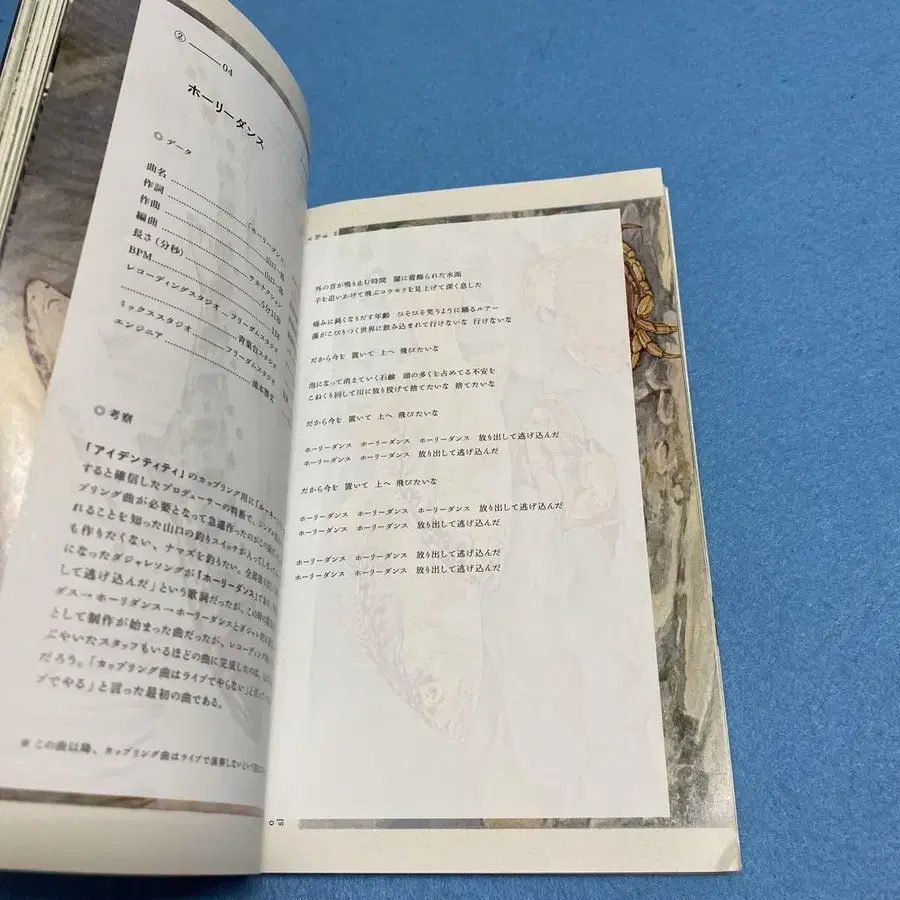 ② 04
ホーリーダンス
◎ データ
曲名 「ホーリーダンス」
作詞 山口一郎
作曲 山口一郎
編曲 サカナクション
長さ（分秒） 5分11秒
BPM
レコーディングスタジオ フリーダムスタジオ
ミックススタジオ 青葉台スタジオ
フリーダムスタジオ
エンジニア 浦本雅史
◎ 考察
「アイデンティティ」のカップリング用に「ルーキー」
すると確信したプロデューサーの判断で、シングル
プリング曲が必要となって急遽作ったのがこの
れることを知った山口の釣りスイッチが入ってしま
も作りたくない、ナマズを釣りたい。全部放り出
になったダジャレソングが「ホーリーダンス」で
して逃げ込んだ」という歌詞だったが、この時の
ダス→ホーリダンス→ホーリーダンスとダジャレ
として制作が始まった曲だったが、レコーディング
ぶやいたスタッフもいるほどの曲に完成したのは、
だろう。「カップリング曲はライブでやらない」と言って
ブでやる」と言った最初の曲である。
※ この曲以降、カップリング曲はライブで演奏しないという
外の音が鳴り止む時間　闇に着飾られた水面
子を追いかけて飛ぶコウモリを見上げて深く息した
痛みに鈍くなりだす年齢　ひそひそ笑うように踊るルアー
藻がこびりつく世界に飲み込まれて行けないな　行けないな
だから今を　置いて　上へ　飛びたいな
泡になって消えていく石鹸　頭の多くを占めてる不安を
こねくり回して川に放り投げて捨てたいな　捨てたいな
だから今を　置いて　上へ　飛びたいな
ホーリーダンス　ホーリーダンス　ホーリーダンス　放り出して逃げ込んだ
ホーリーダンス　ホーリーダンス　放り出して逃げ込んだ
だから今を　置いて　上へ　飛びたいな
ホーリーダンス　ホーリーダンス　ホーリーダンス　放り出して逃げ込んだ
ホーリーダンス　ホーリーダンス　放り出して逃げ込んだ
ホーリーダンス　ホーリーダンス　放り出して逃げ込んだ
ホーリーダンス　ホーリーダンス　放り出して逃げ込んだ